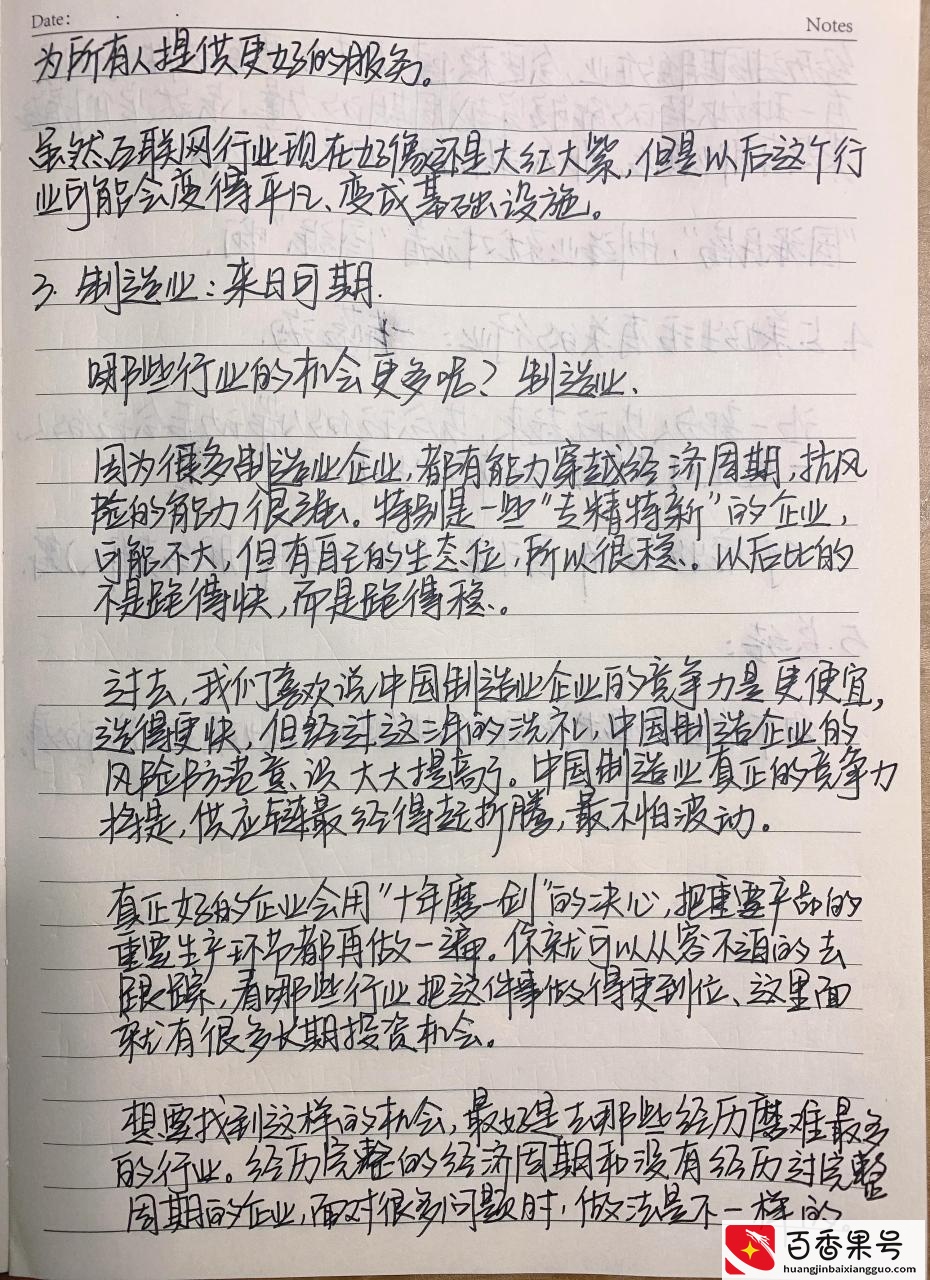 Date:
Notes
为所有人提供更好的服务。
虽然互联网行业现在好像还是大红大紫,但是以后这个行
业可能会变得平凡、变成基础设施。
3. 制造业:来日可期.
哪些行业的机会更多呢?制造业.
因为很多制造业企业,都有能力穿越经济周期,抗风
险的能力很强。特别是一些“专精特新”的企业,
可能不大,但有自己的生态位,所以很稳。以后比的
不是跑得快,而是跑得稳。
过去,我们喜欢说中国制造业企业的竞争力是更便宜,
造得更快,但经过这三年的洗礼,中国制造企业的
风险防范意识大大提高了。中国制造业真正的竞争力
将是,供应链最经得起折腾,最不怕波动。
真正好的企业会用“十年磨一剑”的决心,把重要产品的
重要生产环节都再做一遍。你就可以从容不迫的去
跟踪,看哪些行业把这件事做得更到位、这里面
就有很多长期投资机会。
想要找到这样的机会,最好是去那些经历磨难最多
的行业。经历完整的经济周期和没有经历过完整
周期的企业,面对很多问题时,做法是不一样的。
百香果号
huangjinbaixiangguo.com